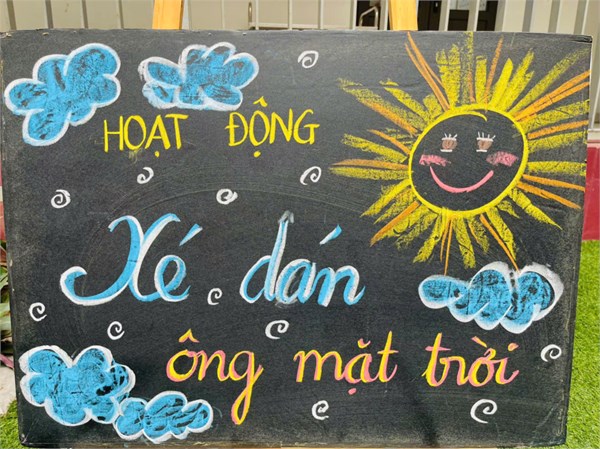 HOẠT ĐỘNG
Xé dán
ông mặt trời